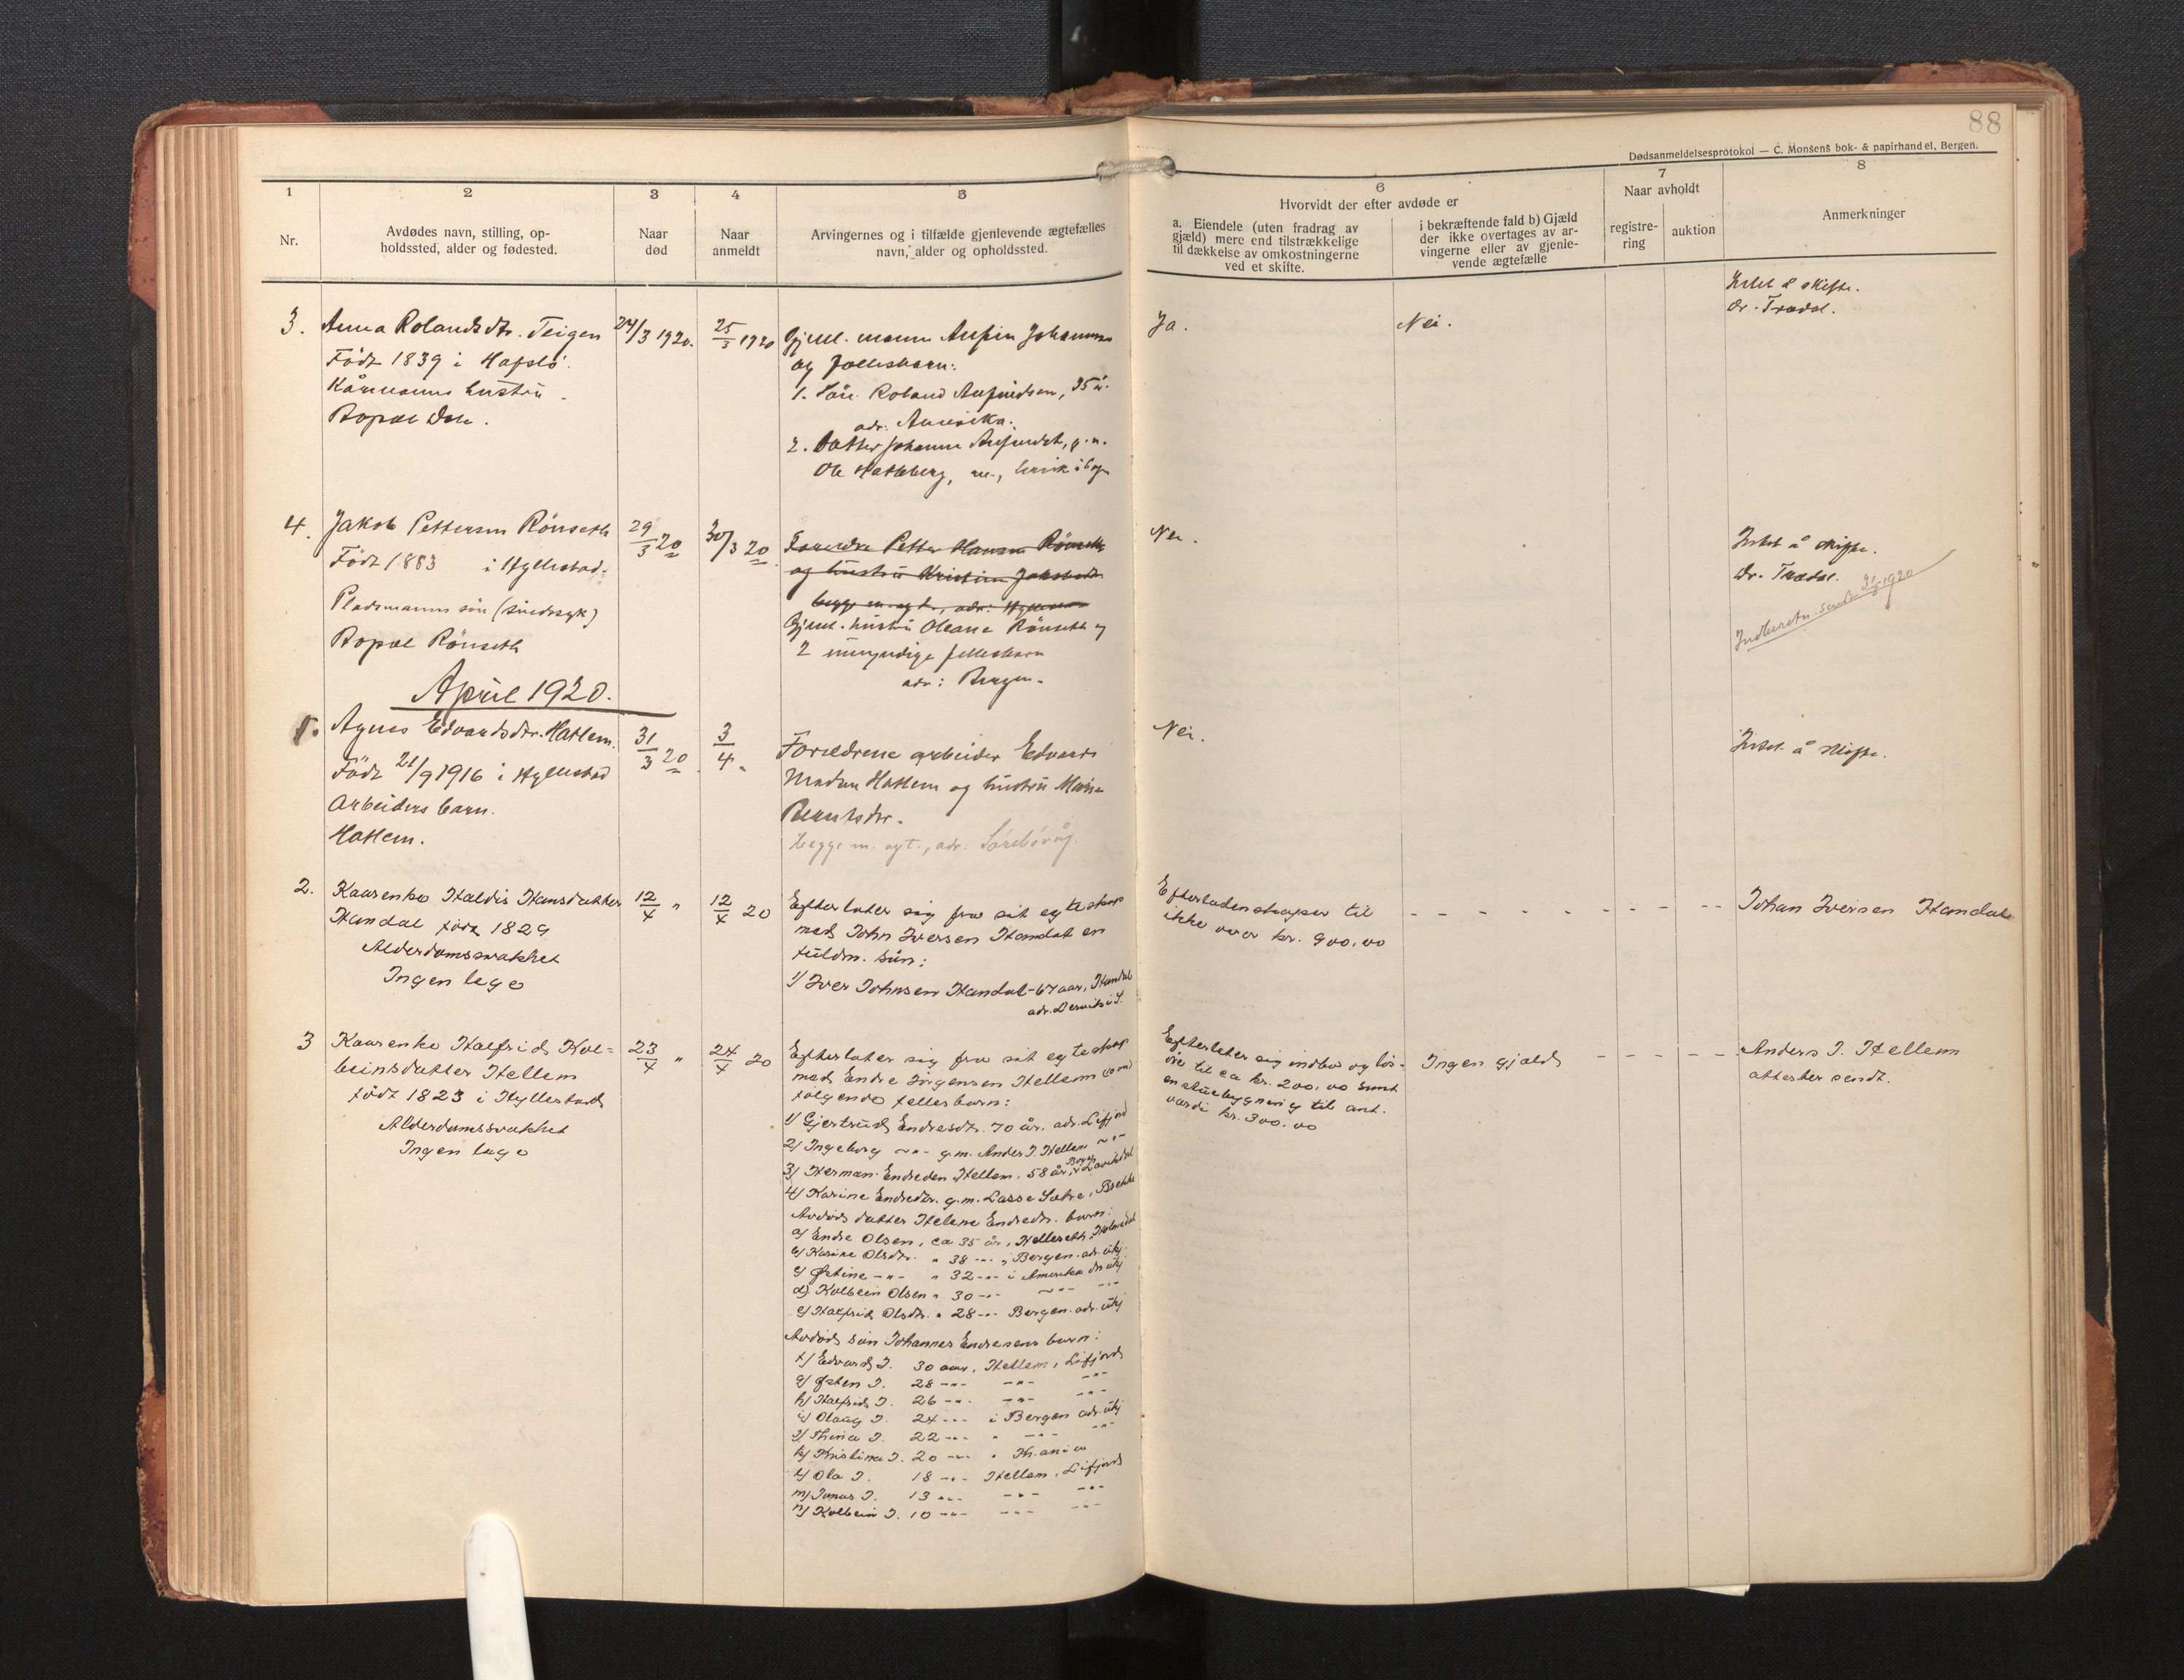 88
Dødsanmeldelsesprotokol — C. Monsens bok- & papirhandel, Bergen.
1
2
3
4
5
6
7
8
Nr.
Avdødes navn, stilling, op-
holdssted, alder og fødested.
Naar
død
Naar
anmeldt
Arvingernes og i tilfælde gjenlevende ægtefælles
navn, alder og opholdssted.
Hvorvidt der efter avdøde er
a. Eiendele (uten fradrag av
gjæld) mere end tilstrækkelige
til dækkelse av omkostningerne
ved et skifte.
i bekræftende fald b) Gjæld
der ikke overtages av ar-
vingerne eller av gjenle-
vende ægtefælle
Naar avholdt
registre-
ring
auktion
Anmerkninger
3.
Anna Rolandsdtr. Teigen
Født 1839 i Hafslo.
Kårmanns hustru.
Bopæl Dale.
24/3 1920.
25/3 1920
Gjenl. mann Anfin Johannes
og fellesbarn:
1. Søn Roland Anfindsen, 35 år.
adr. Amerika.
2. Datter Johanne Anfinsdt, g. m.
Ole Hatleberg,
Ja.
Nei.
Intet å skifte.
Dr. Trædal.
4.
Jakob Pettersen Rönseth
Født 1883 i Hyllestad.
Pladsmanns søn (sindssyk)
Bopæl Rönseth
29/3 20
30/3 20
Forældre Petter Hansen Rönseth
og hustru Kristine Jakobsdt.
begge m. agt., adr: Hyllestad
Gjenl. hustru Oleane Rönseth og
2 umyndige fellesbarn
adr: Bergen.
Nei.
Intet å skifte.
Dr. Trædal.
Indberetn. sendt 31/3 1920
April 1920.
1.
Agnes Edvardsdtr. Hatlem.
Født 21/9 1916 i Hyllestad
Arbeiders barn.
Hatlem.
31/3 20
3/4 "
Forældrene arbeider Edvard
Madsen Hatlem og hustru Marie
Berntsdtr.
begge m. agt., adr: Sörebövåg.
Nei.
Intet å skifte.
2.
Kaarenke Haldis Hansdatter
Handal født 1829
Alderdomssvakhet
Ingen læge
12/4 "
12/4 20
Efterlater sig fra sit egteskap
med John Iversen Handal en
fuldm. sön:
1/ Iver Johnsen Handal - 67 aar, Handal
adr. Leirvik i S.
Efterladenskaper til
ikke over kr. 900,00
Johan Iversen Handal
3
Kaarenke Halfrid Kol=
beinsdatter Hellem
født 1823 i Hyllestad
Alderdomssvakhet
Ingen læge
23/4 "
24/4 20
Efterlater sig fra sit egteskap
med Endre Jörgensen Hellem
følgende fellesbarn:
1/ Gjertrud Endresdtr. 70 år. adr. Lifjord
2/ Ingeborg -"- g.m. Anders J. Hellem -"-
3/ Herman Endresen Hellem, 58 år, Lavikdal
4/ Karine Endresdtr. g.m. Lasse Sætre, Brekke
Avdöd datter Helene Endresdtr. barn:
a/ Endre Olsen, ca 35 år,
b/ Karine Olsdtr. " 38 -"-, Bergen. adr. ukj.
c/ Østine -"- " 32 -"- i Amerika adr. ukj
d/ Kolbein Olsen " 30 -"- -"-
e/ Halfrid Olsdtr. " 28 -"- Bergen. adr. ukj
Avdöd sön Johannes Endresens barn:
f/ Edvard J. 30 aar, Hellem, Lifjord
g/ Østen J. 28 -"- -"- -"-
h/ Halfrid J. 26 -"- -"- -"-
i/ Olaug J. 24 -"- i Bergen adr. ukj
j/ Thina J. 22 -"- " -"- -"-
k/ Kristine J. 20 -"- " Kr.ania
l/ Ola J. 18 -"- Hellem, Lifjord
m/ Jonas J. 13 -"- -"- -"-
n/ Kolbein J. 10 -"- -"- -"-
Efterlater sig indbo og lös-
öre til ca kr. 200,00 samt
en stuebygning til ant.
værdi kr. 300,00
Ingen gjæld
Anders J. Hellem
attester sendt.